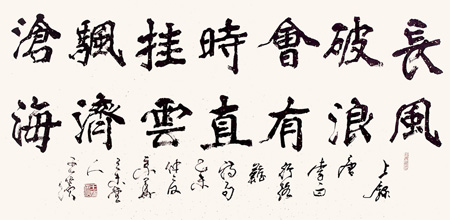 長風
破浪
會有
時直
挂雲
颿濟
滄海
上錄
唐
李白
行路
難
詩句
仲夏